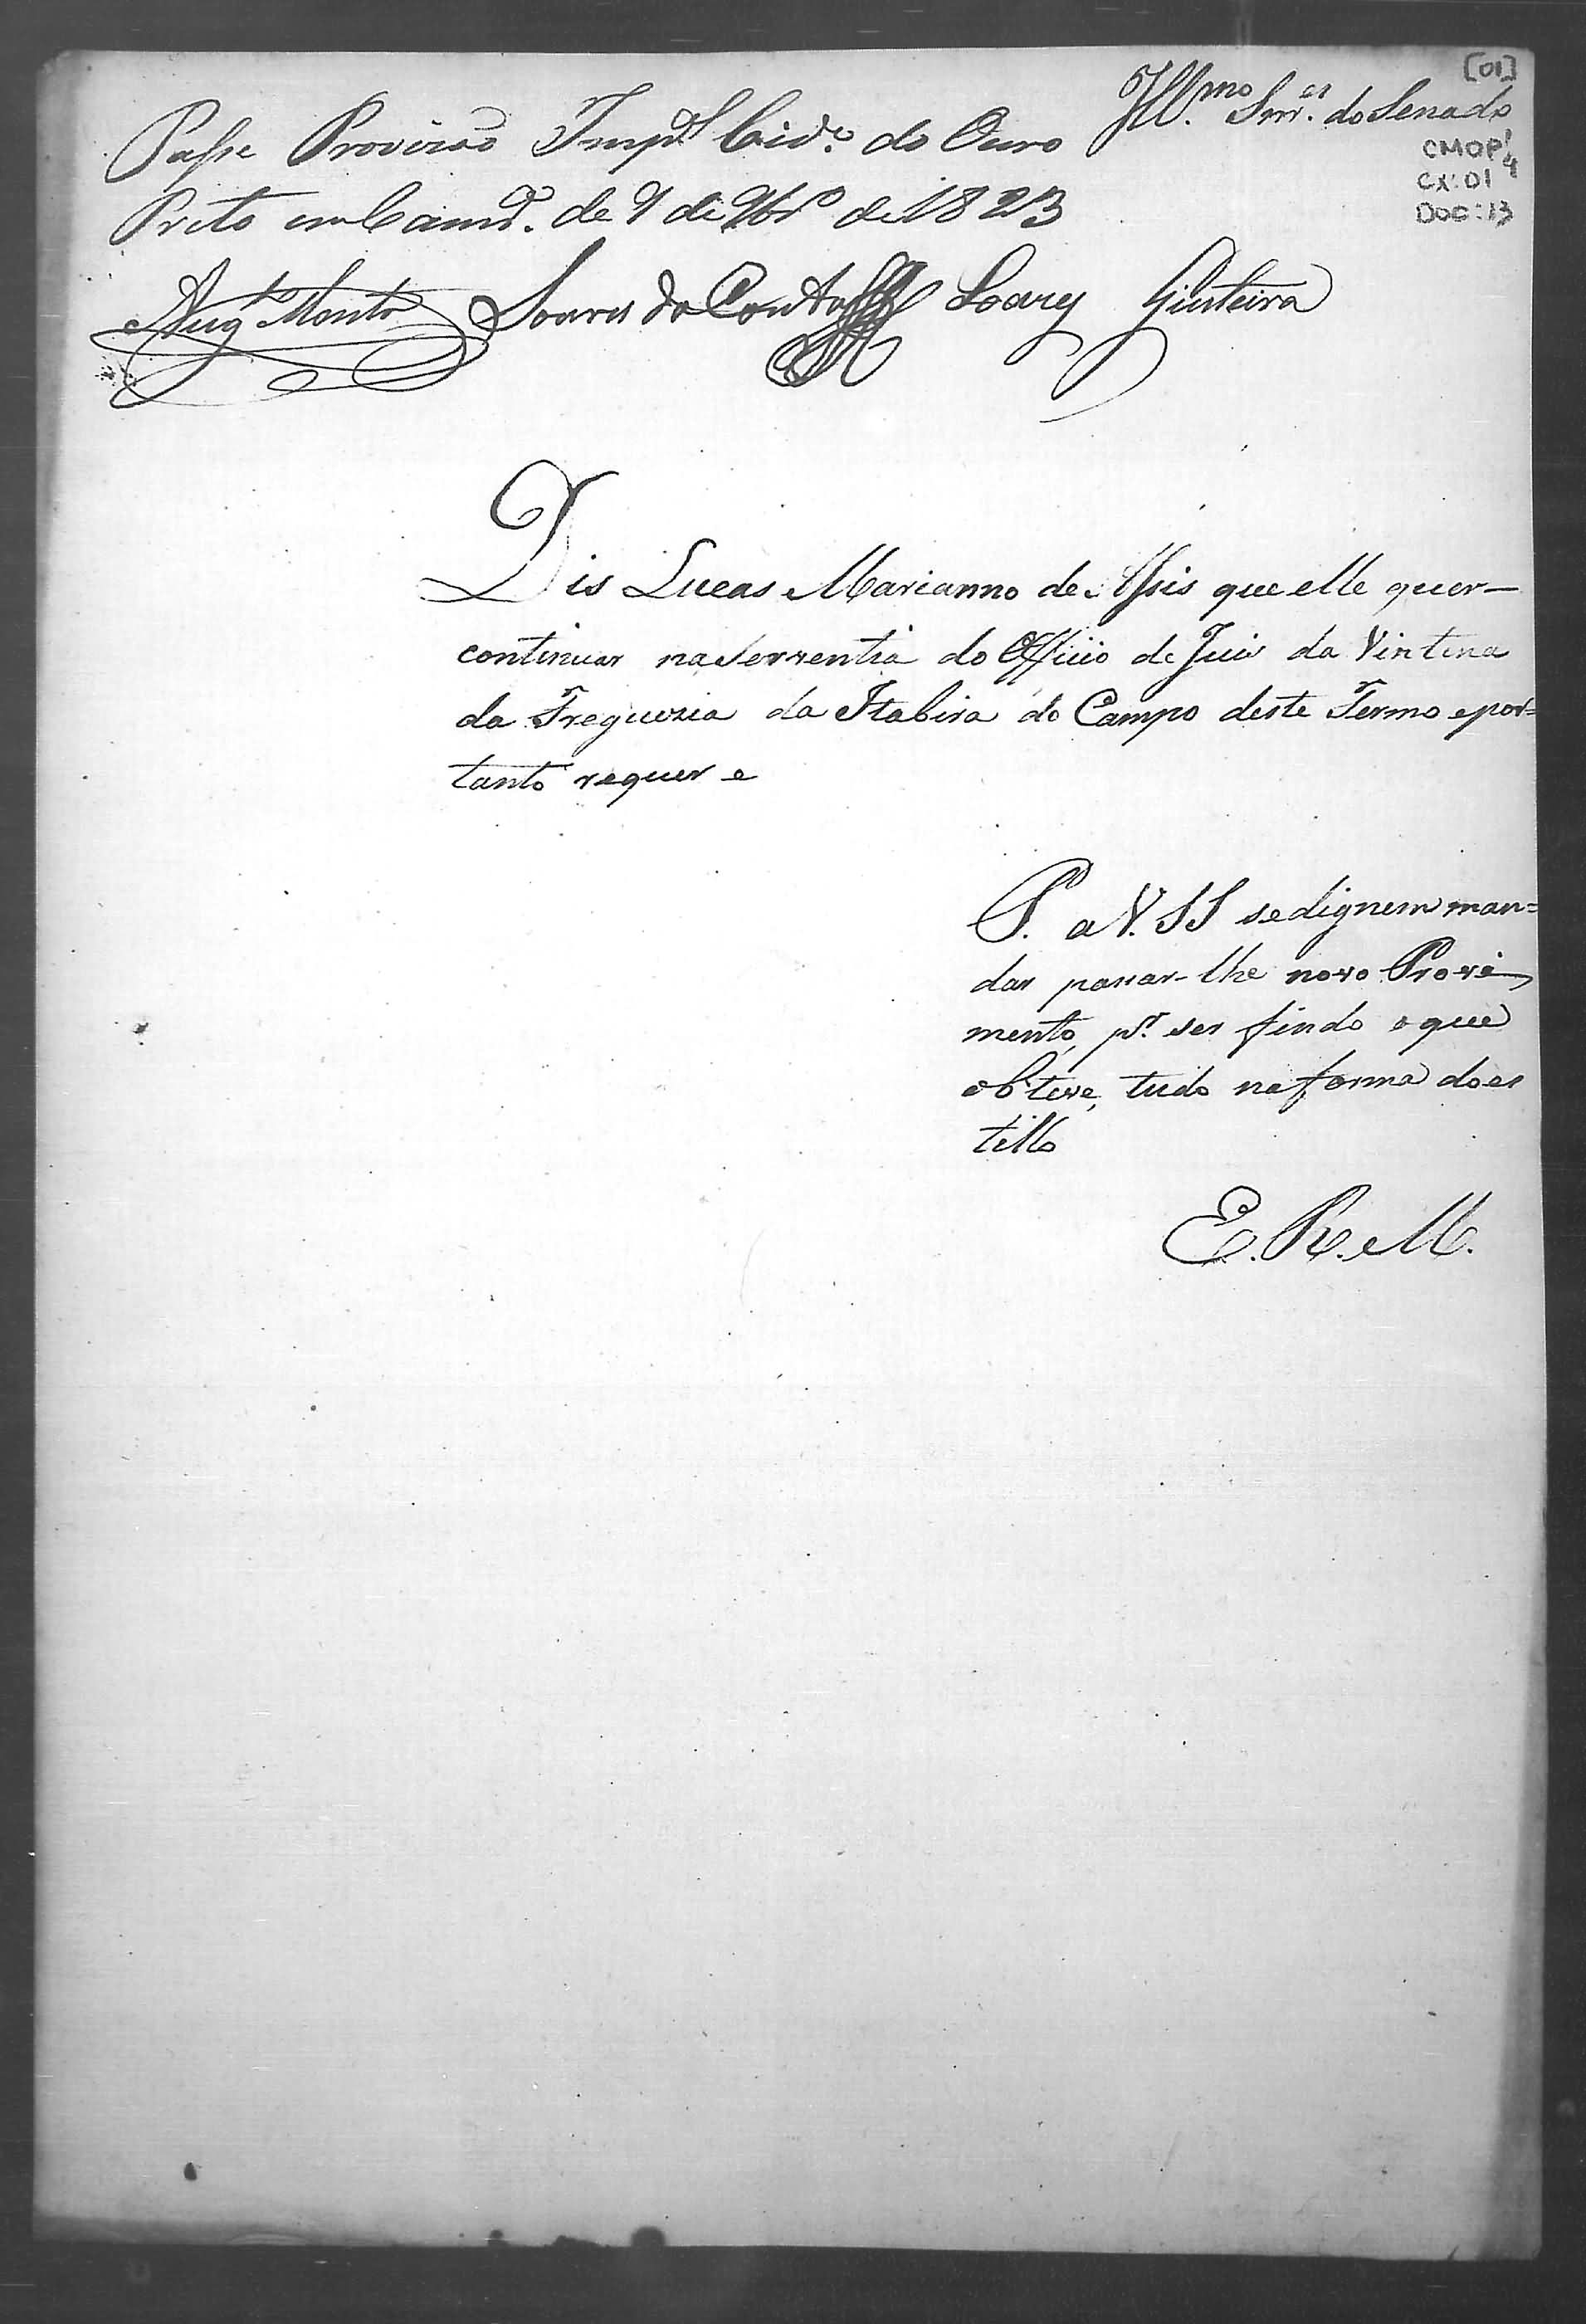 [01]
Ill.mo Snr.es do Senado
CMOP 1/4
CX: 01
DOC: 13
Passe Provizão Imp.l Cid.e do Ouro
Preto em Cam.ra de 9 de 9br.o de 1823
Aug.to Monte Soares do Couto Soares Quiteira
Dis Lucas Marianno de Assis que elle quer
continuar na Serventia do Officio de Juis da Vintena
da Freguezia da Itabira do Campo deste Termo epor=
tanto requer e
P. a V. SS se dignem man=
dar passar-lhe novo Provi-
mento, p.r ser findo o que
obteve, tudo na forma do es
tillo
E. R. M.